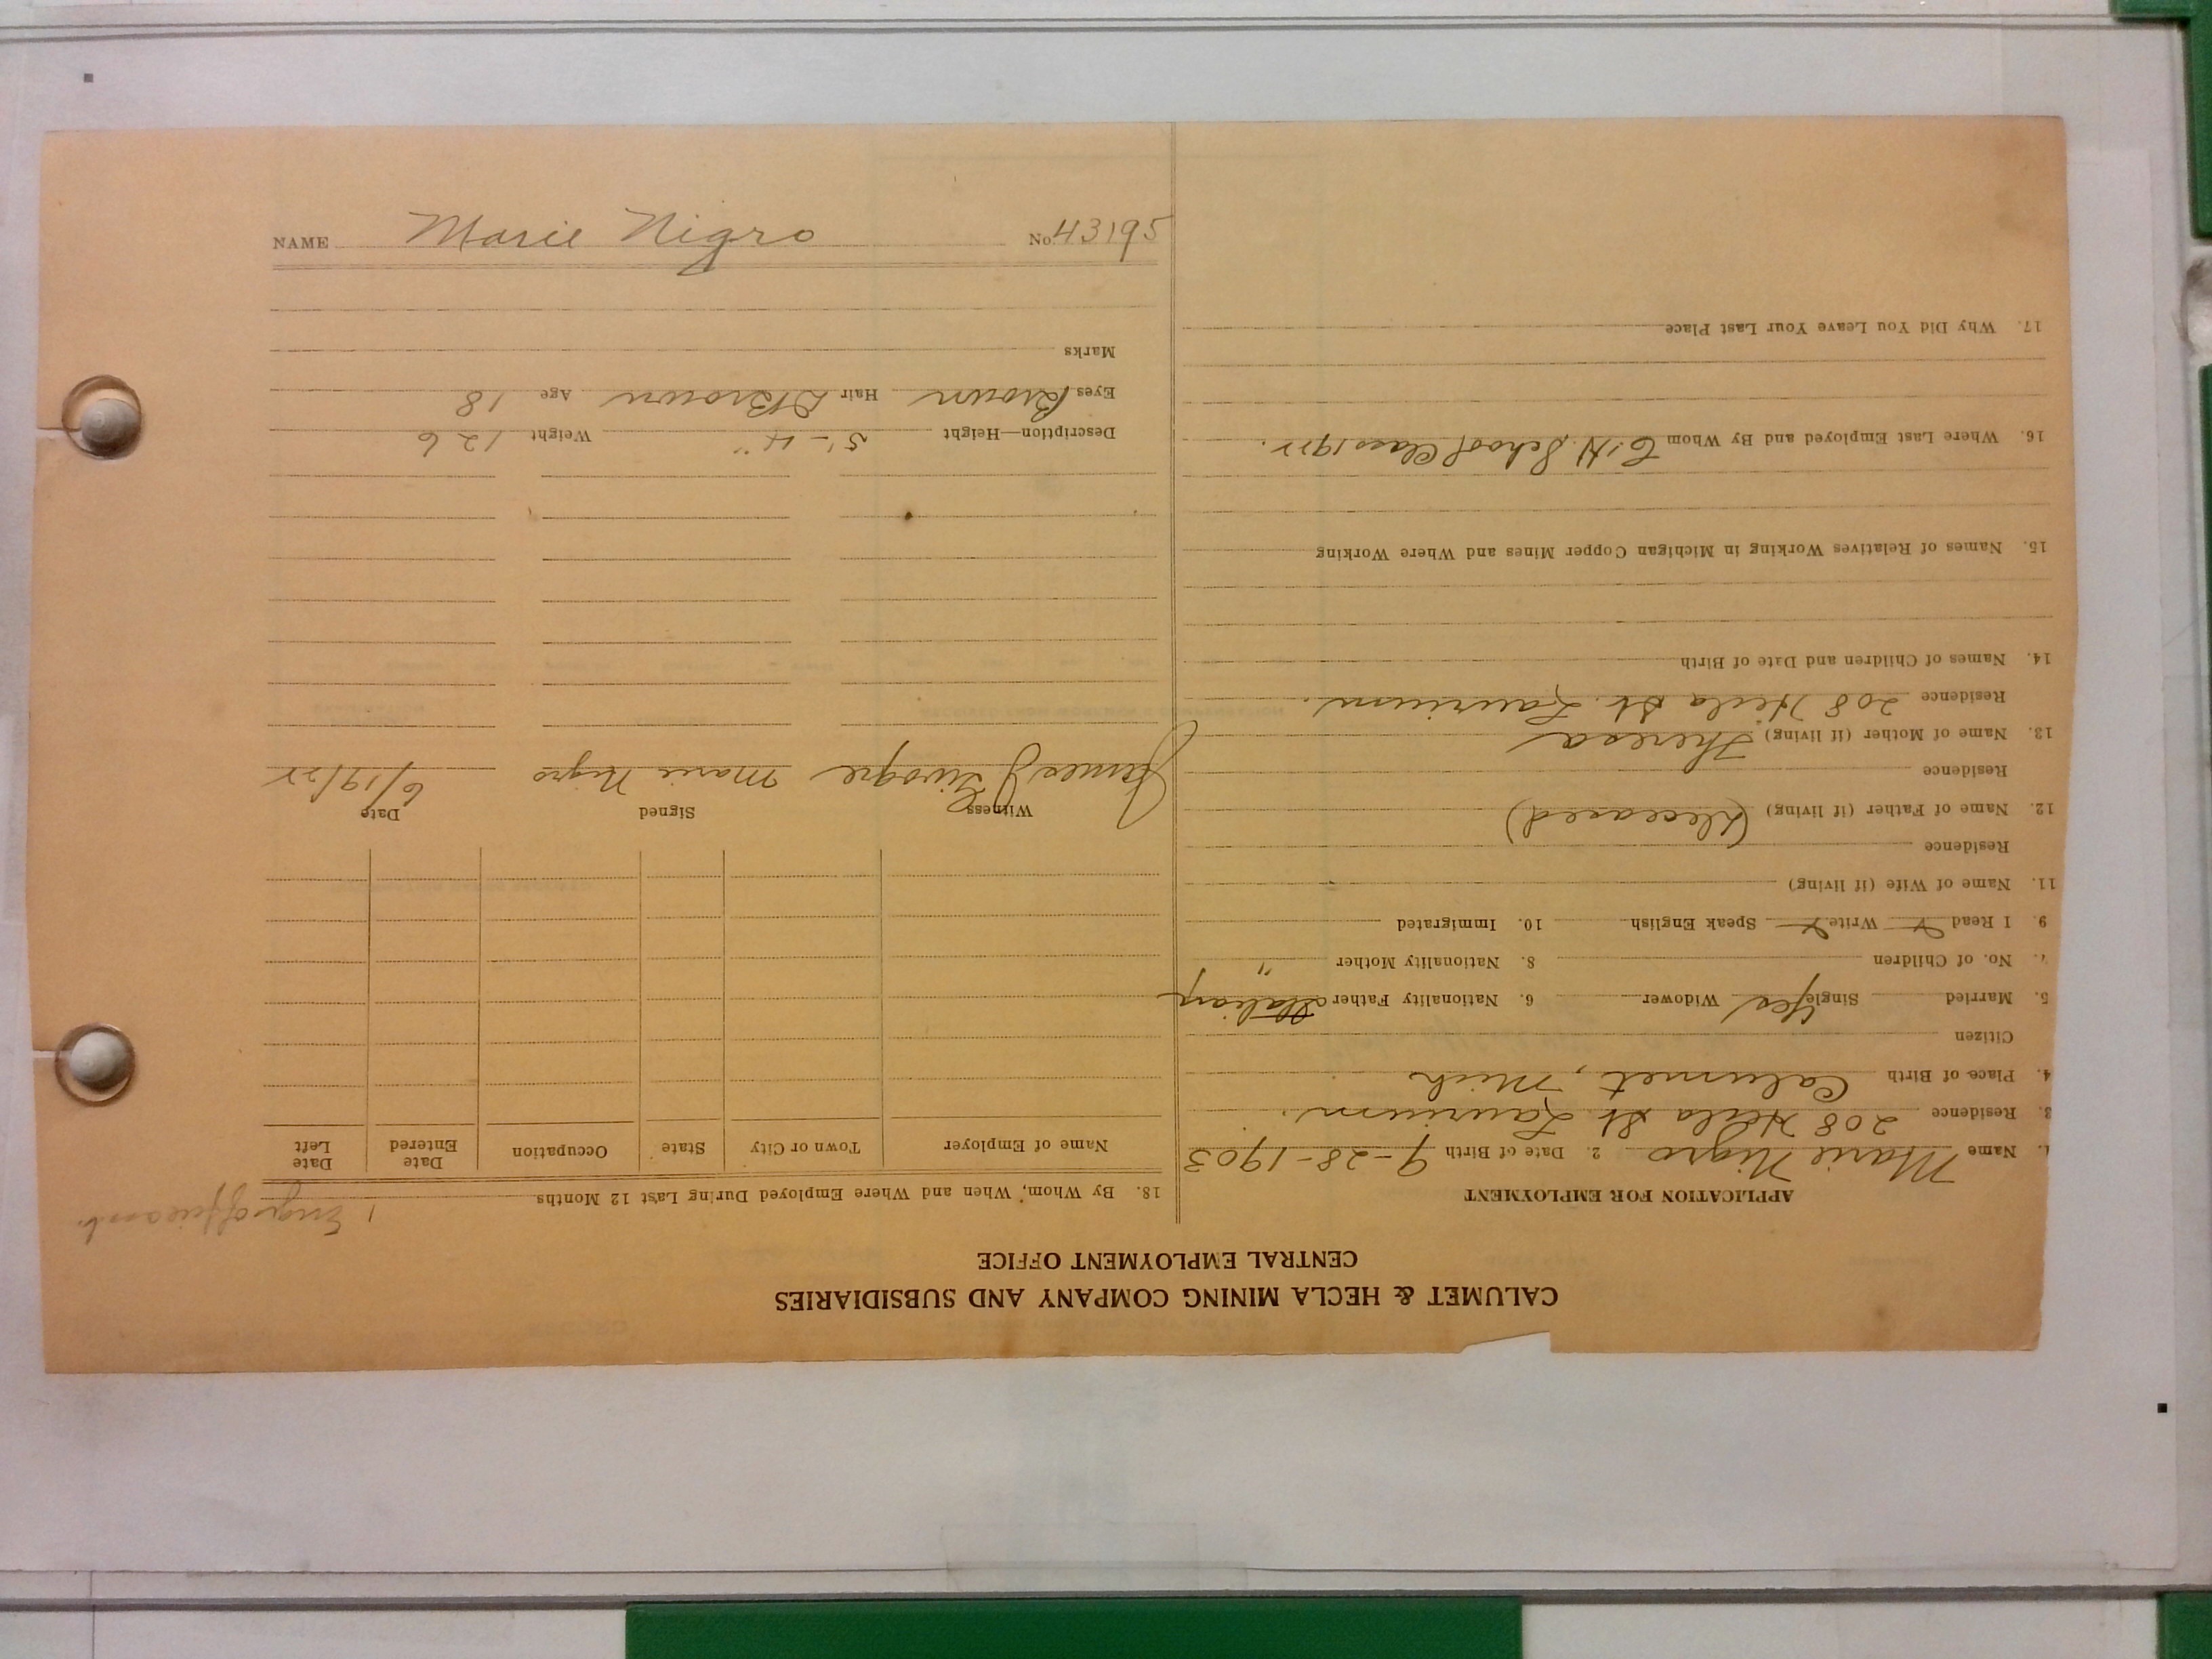 CALUMET & HECLA MINING COMPANY AND SUBSIDIARIES
CENTRAL EMPLOYMENT OFFICE
APPLICATION FOR EMPLOYMENT
1. Name Marie Nigro 2. Date of Birth 9-28-1903
3. Residence 208 Hecla St. Laurium.
4. Place of Birth Calumet, Mich
Citizen
5. Married Single Yes Widower 6. Nationality Father Italian
7. No. of Children 8. Nationality Mother "
9. I Read Write Speak English 10. Immigrated
11. Name of Wife (if living)
Residence
12. Name of Father (if living) (Deceased)
Residence
13. Name of Mother (if living) Theresa
Residence 208 Hecla St. Laurium.
14. Names of Children and Date of Birth
15. Names of Relatives Working in Michigan Copper Mines and Where Working
16. Where Last Employed and By Whom C.H. School Class 1922.
17. Why Did You Leave Your Last Place
18. By Whom, When and Where Employed During Last 12 Months
Name of Employer Town or City State Occupation Date Entered Date Left
Witness Signed Date
James J Marie Nigro 6/19/22
Description—Height 5'-4" Weight 126
Eyes Brown Hair Brown Age 18
Marks
NAME Marie Nigro No. 43195